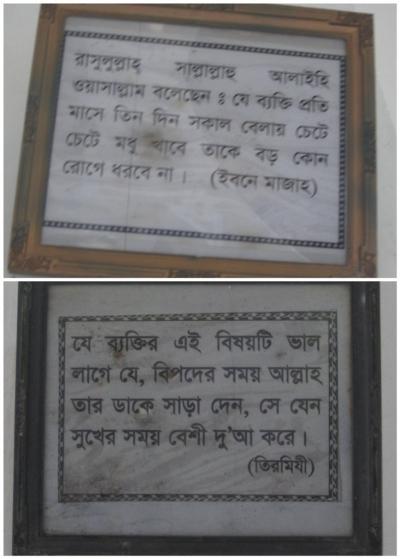 রাসুলুল্লাহ্ সাল্লাল্লাহু আলাইহি
ওয়াসাল্লাম বলেছেন ঃ যে ব্যক্তি প্রতি
মাসে তিন দিন সকাল বেলায় চেটে
চেটে মধু খাবে তাকে বড় কোন
রোগে ধরবে না। (ইবনে মাজাহ্)
যে ব্যক্তির এই বিষয়টি ভাল
লাগে যে, বিপদের সময় আল্লাহ
তার ডাকে সাড়া দেন, সে যেন
সুখের সময় বেশী দু'আ করে।
(তিরমিযী)